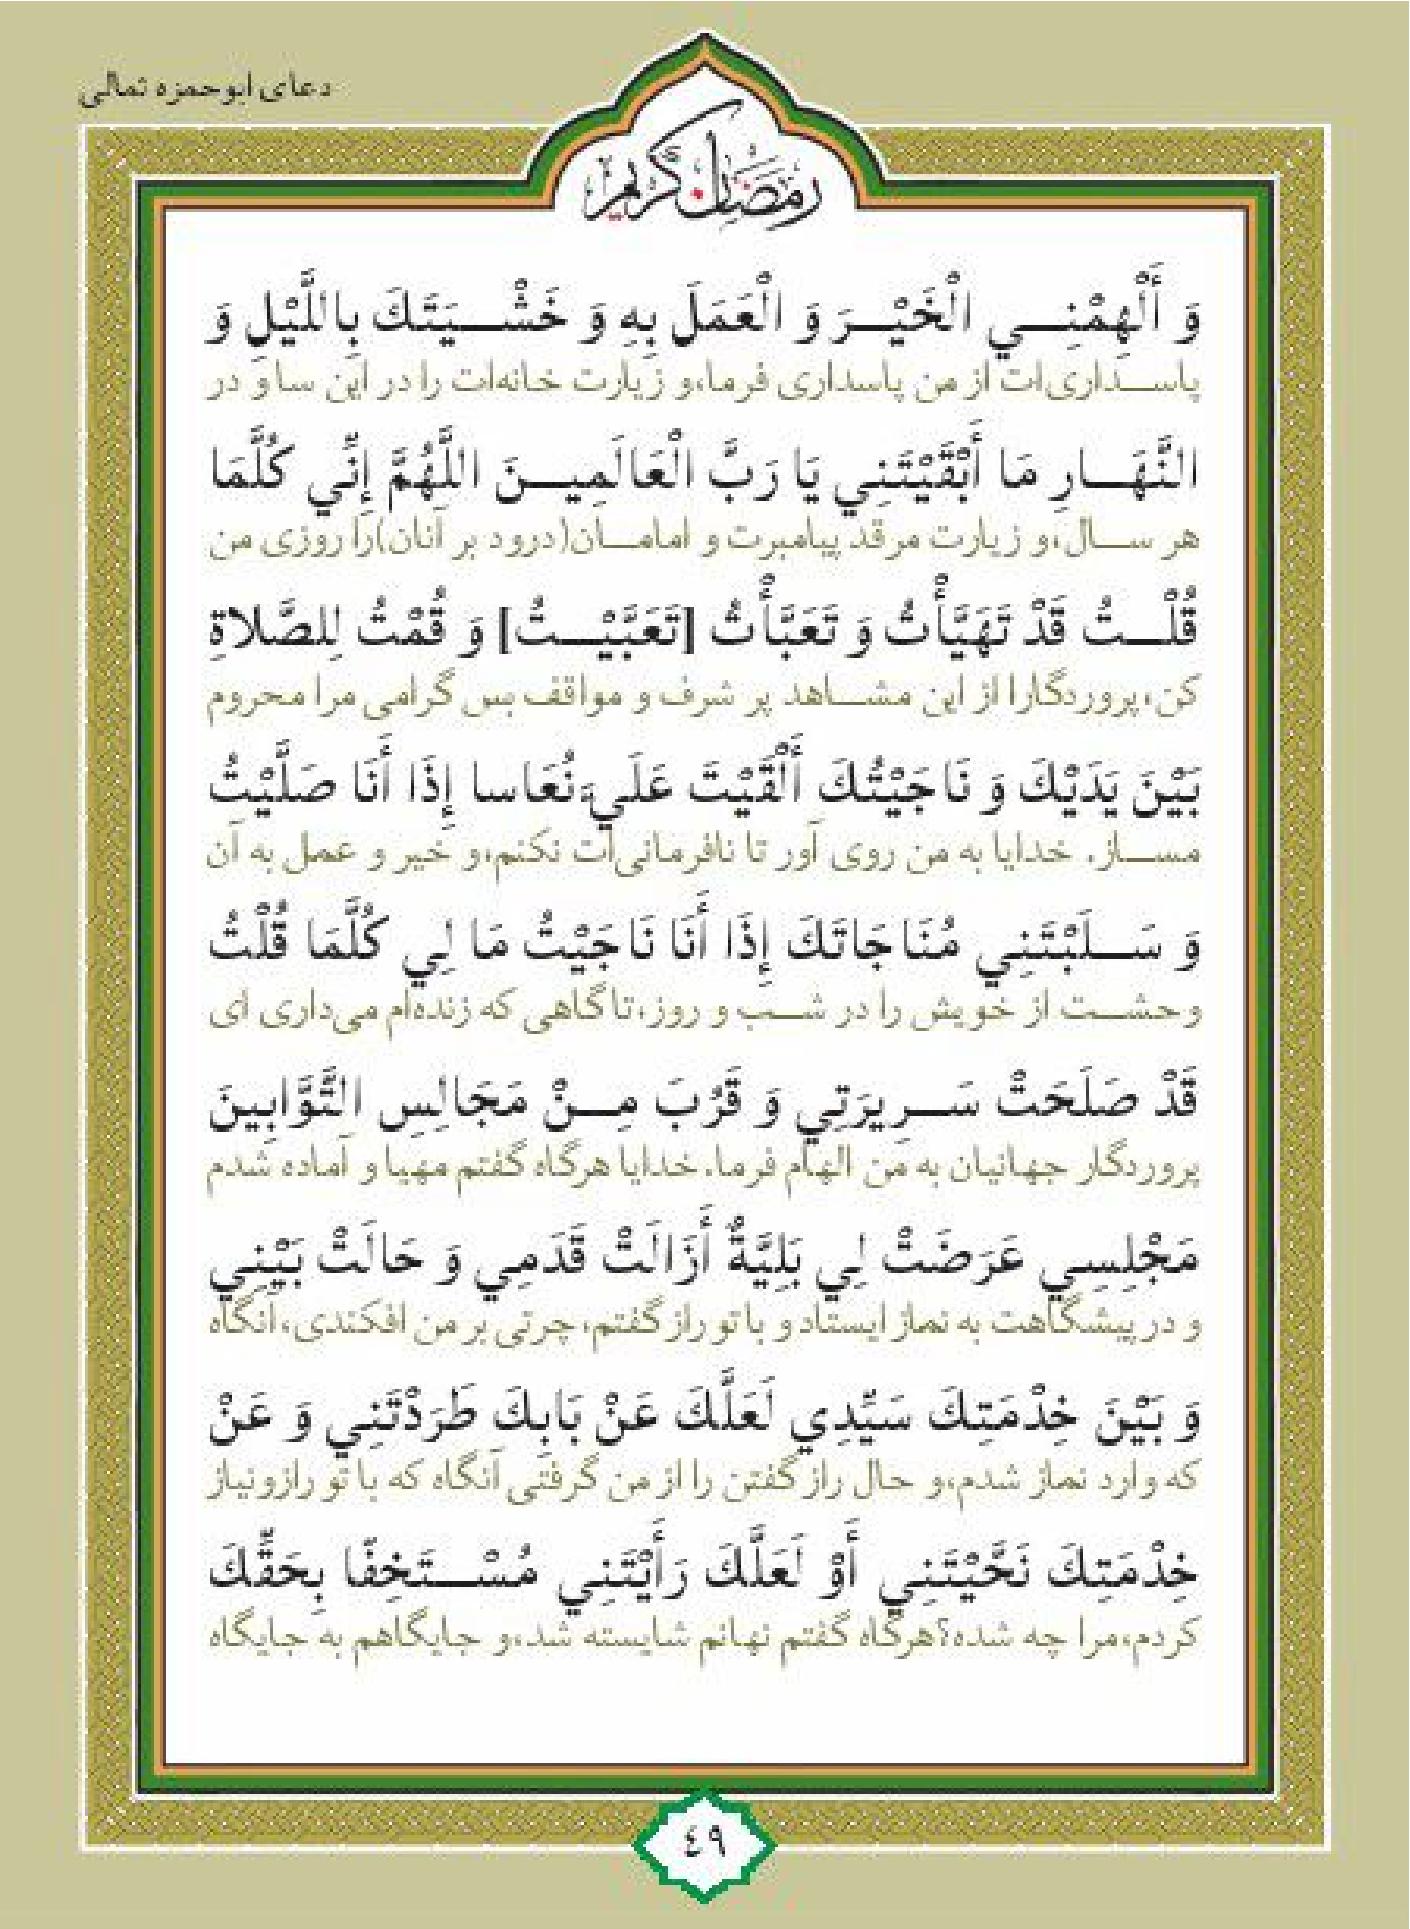 دعای ابوحمزه ثمالی
رمضان كريم
وَ أَلْهِمْنِي الْخَيْرَ وَ الْعَمَلَ بِهِ وَ خَشْيَتَكَ بِاللَّيْلِ وَ
پاسداری‌ات از من پاسداری فرما،و زیارت خانه‌ات را در این سا و در
النَّهَارِ مَا أَبْقَيْتَنِي يَا رَبَّ الْعَالَمِينَ اللَّهُمَّ إِنِّي كُلَّمَا
هر سال،و زیارت مرقد پیامبرت و امامان(درود بر آنان)را روزی من
قُلْتُ قَدْ تَهَيَّأْتُ وَ تَعَبَّأْتُ [تَعَبَّيْتُ] وَ قُمْتُ لِلصَّلاةِ
کن،پروردگارا از این مشاهد پر شرف و مواقف بس گرامی مرا محروم
بَيْنَ يَدَيْكَ وَ نَاجَيْتُكَ أَلْقَيْتَ عَلَيَّ نُعَاسا إِذَا أَنَا صَلَّيْتُ
مساز. خدایا به من روی آور تا نافرمانی‌ات نکنم،و خیر و عمل به آن
وَ سَلَبْتَنِي مُنَاجَاتَكَ إِذَا أَنَا نَاجَيْتُ مَا لِي كُلَّمَا قُلْتُ
وحشت از خویش را در شب و روز،تا گاهی که زنده‌ام می‌داری ای
قَدْ صَلَحَتْ سَرِيرَتِي وَ قَرُبَ مِنْ مَجَالِسِ التَّوَّابِينَ
پروردگار جهانیان به من الهام فرما. خدایا هرگاه گفتم مهیا و آماده شدم
مَجْلِسِي عَرَضَتْ لِي بَلِيَّةٌ أَزَالَتْ قَدَمِي وَ حَالَتْ بَيْنِي
و در پیشگاهت به نماز ایستاد و با تو راز گفتم، چرتی بر من افکندی،آنگاه
وَ بَيْنَ خِدْمَتِكَ سَيِّدِي لَعَلَّكَ عَنْ بَابِكَ طَرَدْتَنِي وَ عَنْ
که وارد نماز شدم،و حال راز گفتن را از من گرفتی آنگاه که با تو رازونیاز
خِدْمَتِكَ نَحَّيْتَنِي أَوْ لَعَلَّكَ رَأَيْتَنِي مُسْتَخِفّا بِحَقِّكَ
کردم،مرا چه شده؟هرگاه گفتم نهانم شایسته شد،و جایگاهم به جایگاه
٤٩